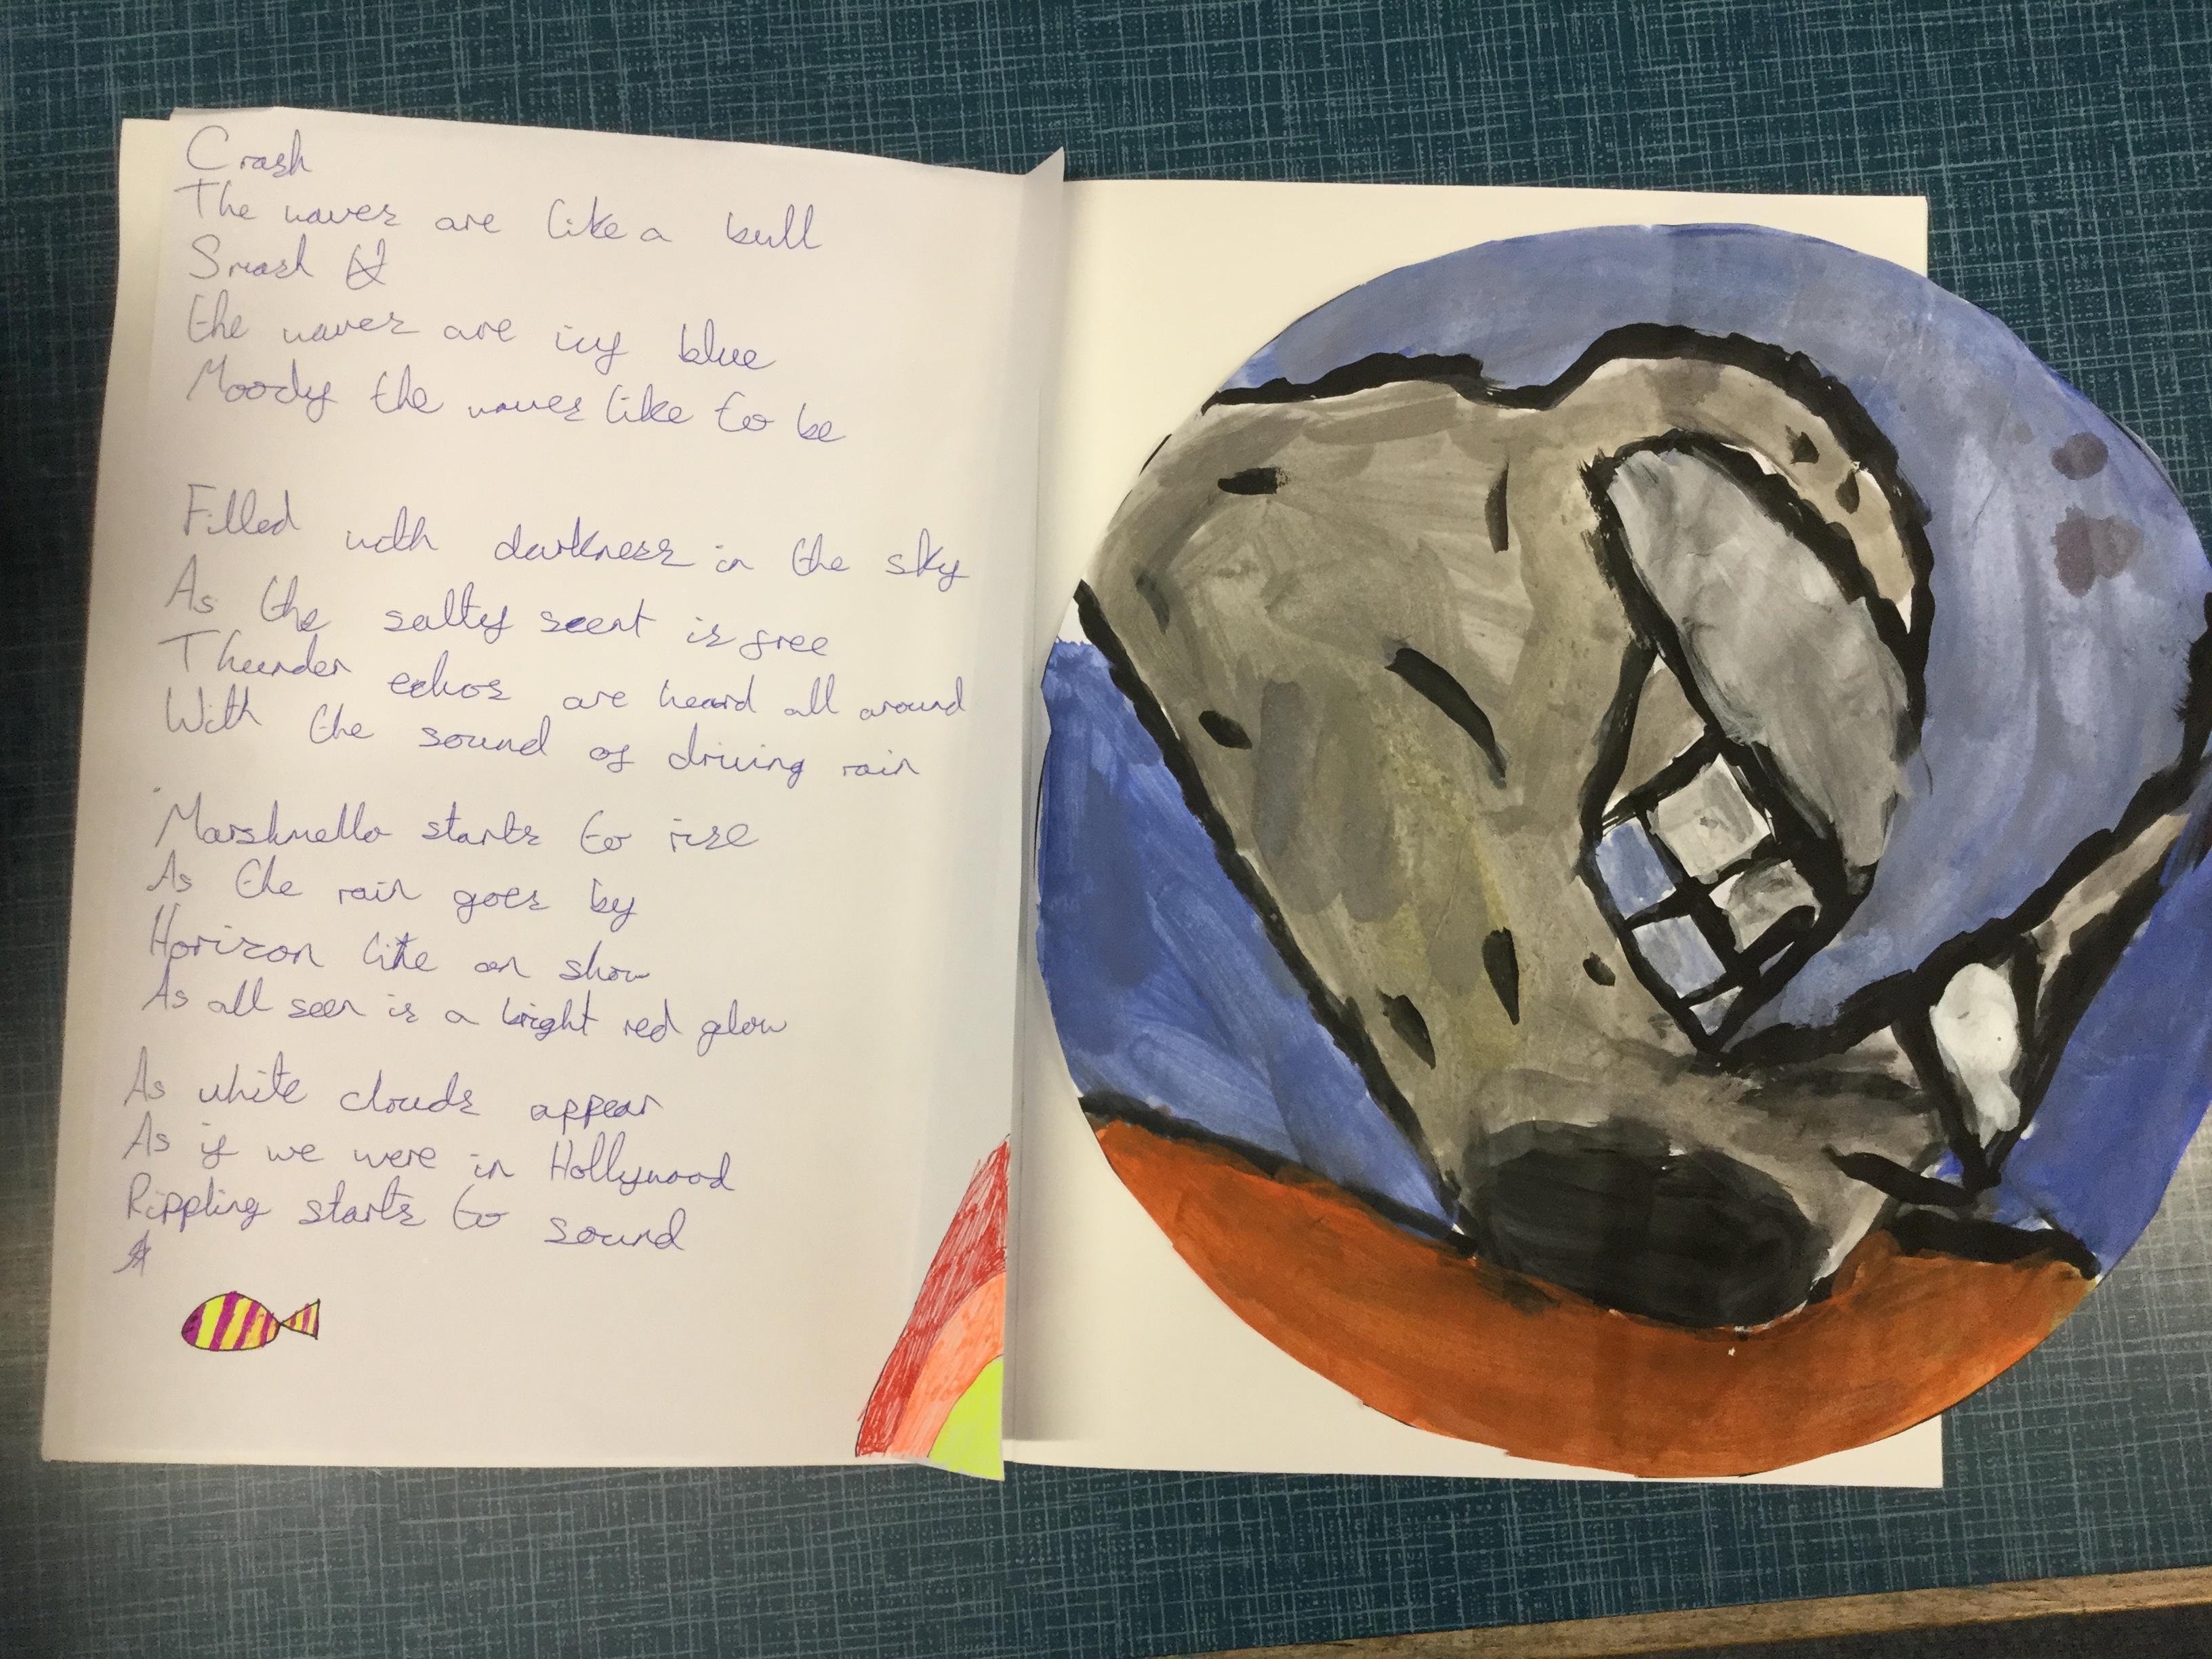 Crash
The waves are like a bull
Smash
the waves are icy blue
Moody the waves like to be
Filled with darkness in the sky
As the salty scent is free
Thunder echos are heard all around
With the sound of driving rain
Marshmello starts to rise
As the rain goes by
Horizon like on show
As all seen is a bright red glow
As white clouds appear
As if we were in Hollywood
Rippling starts to sound